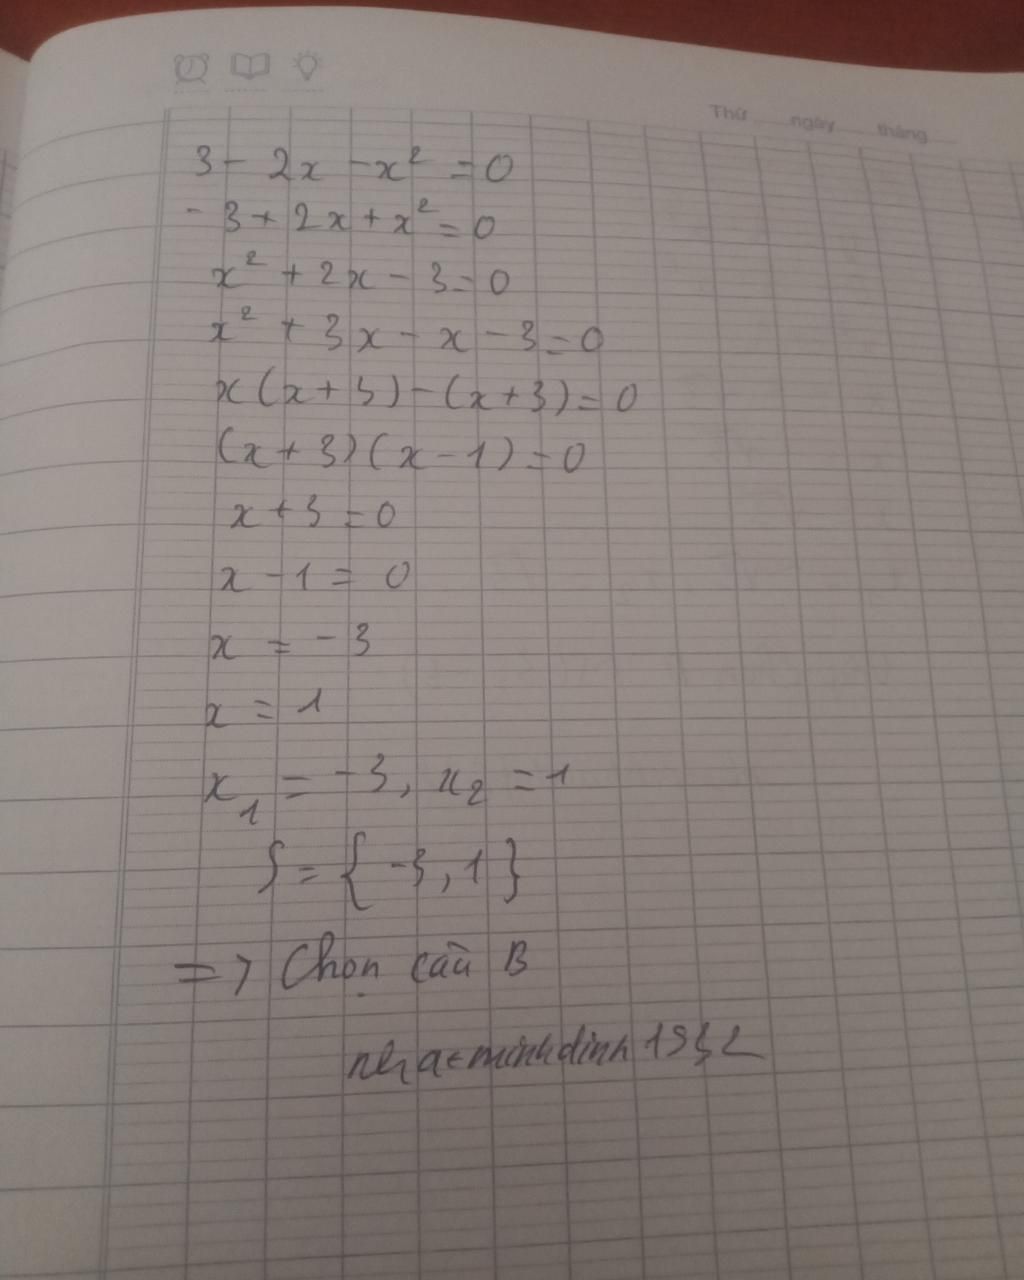 Thứ ngày tháng
3 - 2x - x² = 0
- 3 + 2x + x² = 0
x² + 2x - 3 = 0
x² + 3x - x - 3 = 0
x(x + 3) - (x + 3) = 0
(x + 3)(x - 1) = 0
x + 3 = 0
x - 1 = 0
x = - 3
x = 1
x₁ = - 3, x₂ = 1
S = { -3, 1 }
=> Chọn câu B